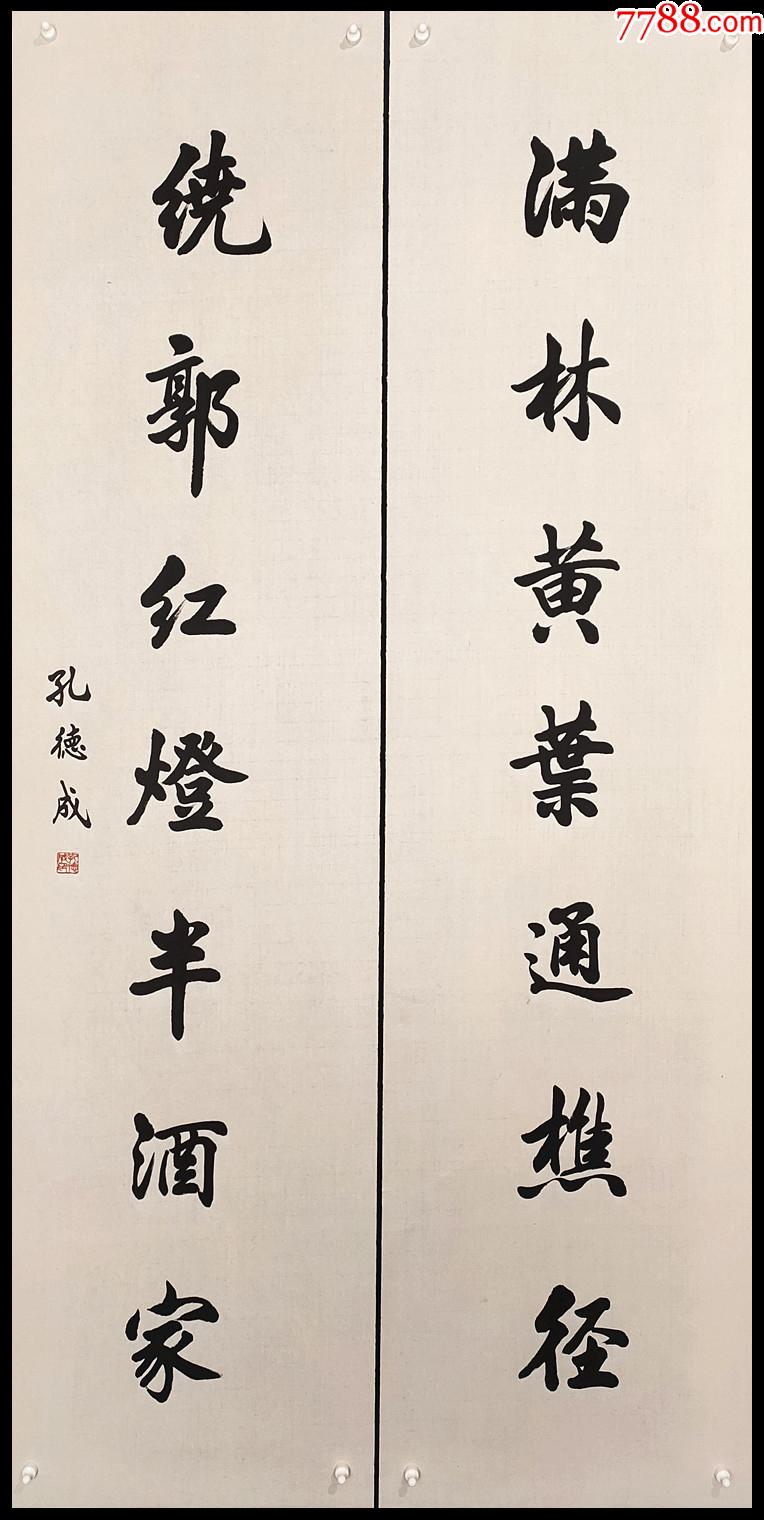 7788.com
满林黄葉通樵径
繞郭红燈半酒家
孔德成